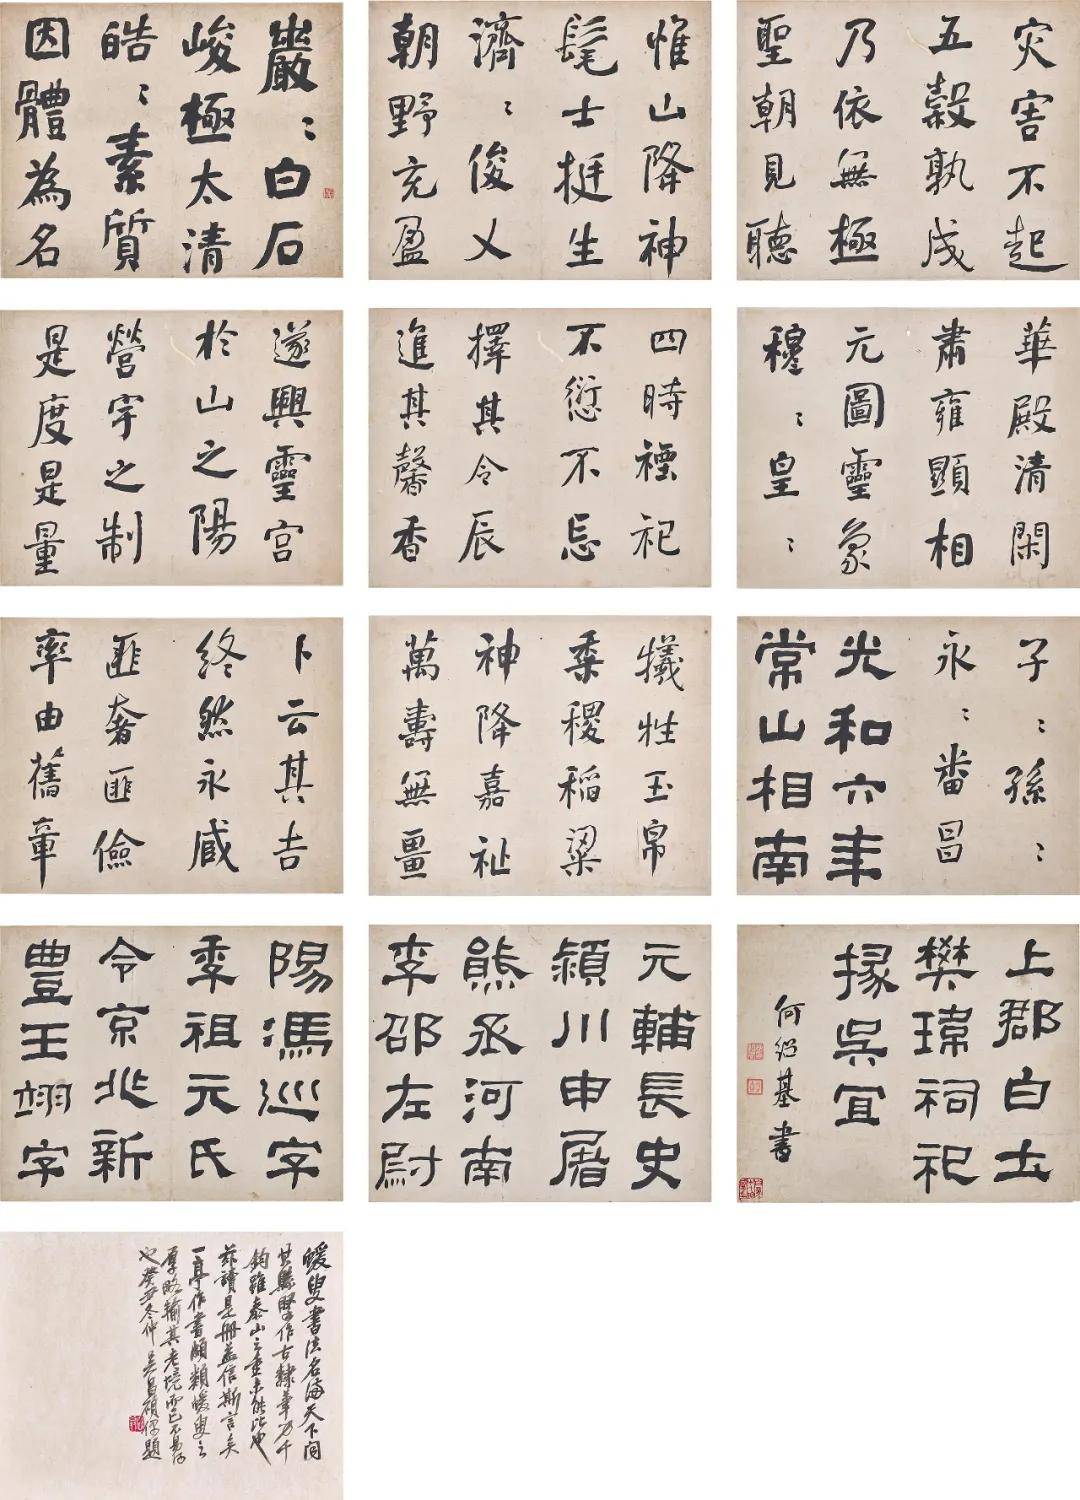 巖〻白石
峻極太清
皓〻素質
因體為名
惟山降神
髦士挺生
濟〻俊乂
朝野充盈
灾害不起
五穀孰成
乃依無極
聖朝見聽
遂興靈宮
於山之陽
營宇之制
是度是量
卜云其吉
終然永臧
匪奢匪儉
率由舊章
華殿清閑
肅雍顯相
元圖靈象
穆〻皇〻
四時禋祀
不愆不忘
擇其令辰
進其馨香
犧牲玉帛
黍稷稻粱
神降嘉祉
萬壽無畺
子〻孫〻
永〻番昌
光和六年
常山相南
陽馮巡字
季祖元氏
令京兆新
豐王翊字
元輔長史
潁川申屠
熊丞河南
李邵左尉
上郡白土
樊瑋祠祀
掾吳宜
何紹基書
蝯叟書法名海天下間
其縣臂作古隸筆力千
鈞雖泰山之重未能比也
茲讀是冊益信斯言矣
一亭作書頗類蝯叟之
厚略輸其老境而已不易得
也癸丑冬仲吳昌碩題